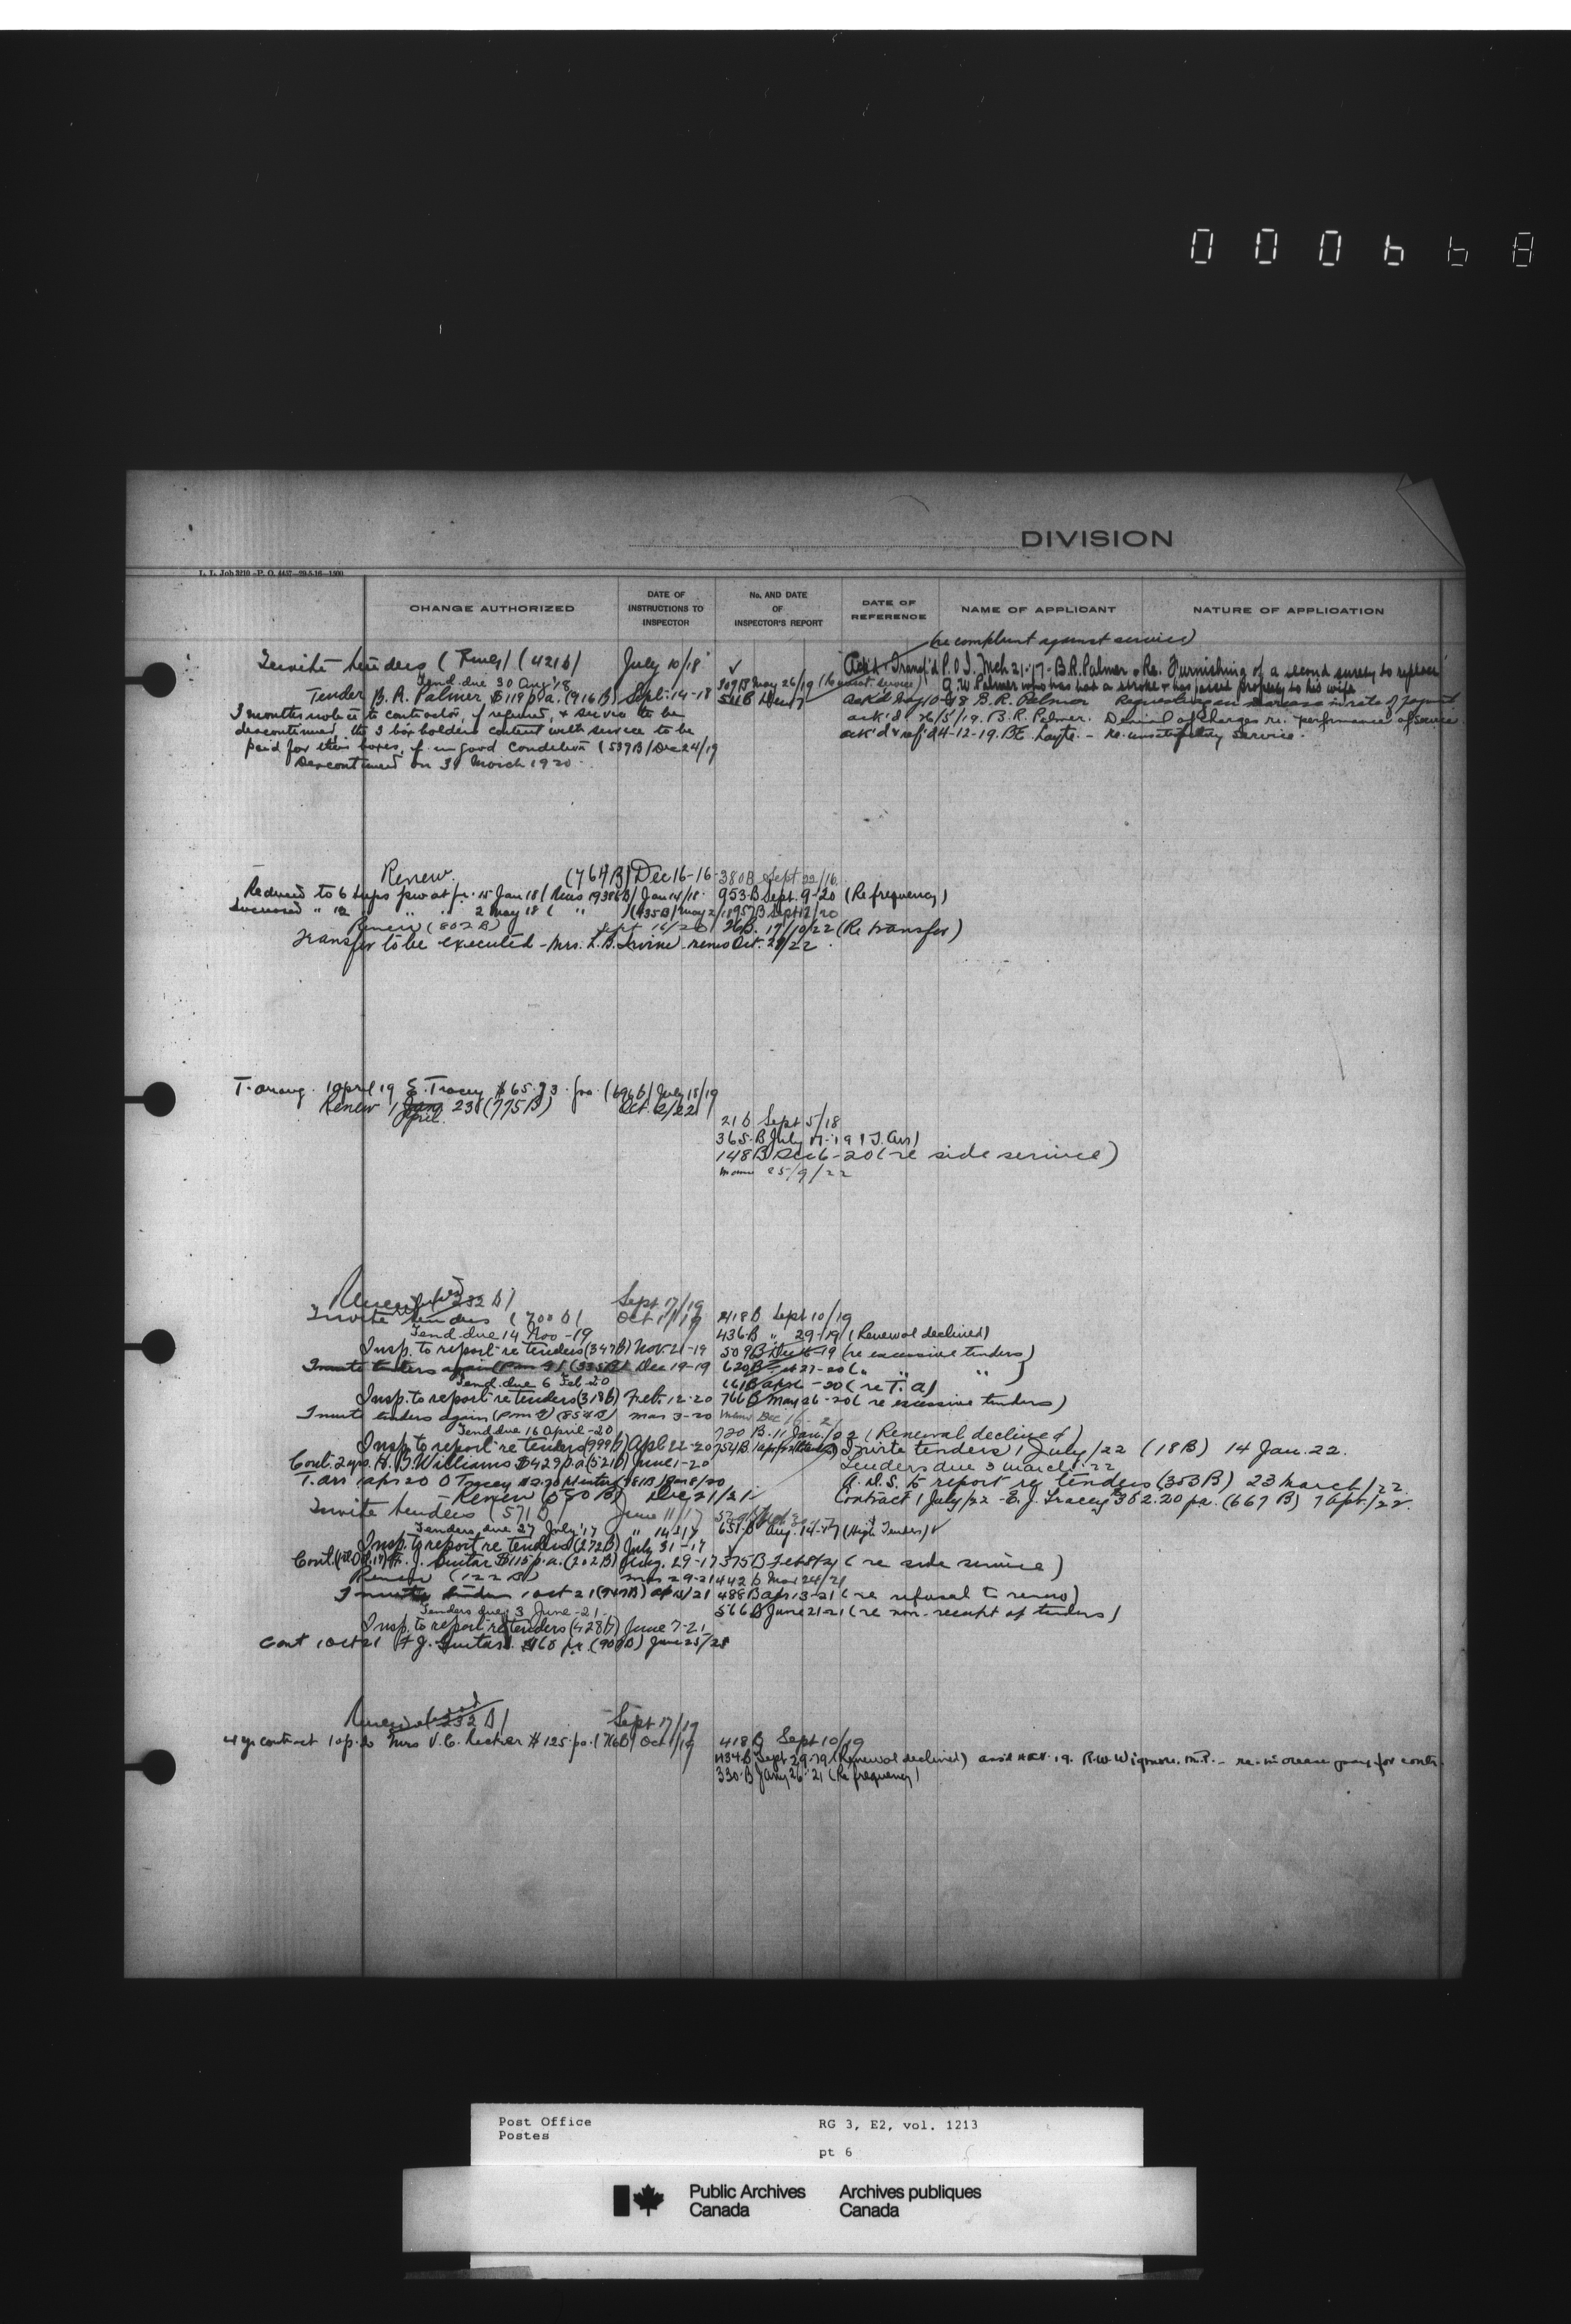 000668
DIVISION
L. L. Job 3210—P. O. 4457—29-5-16—1500
CHANGE AUTHORIZED
DATE OF INSTRUCTIONS TO INSPECTOR
No. AND DATE OF INSPECTOR'S REPORT
DATE OF REFERENCE
NAME OF APPLICANT
NATURE OF APPLICATION
(re complaint against service)
Invite tenders (421b) July 10/18
Ack'd & Transf'd P.O.I. Mch 21-17 - B.R. Palmer - Re. Furnishing of a second surety to replace
G.W. Palmer who has had a stroke & has passed property to his wife
Tend. due 30 Aug '18
309B May 26/19
Tender B. R. Palmer $118 p.a. (916B) Sept-14-18
B.R. Palmer Requesting an increase in rate of payment
3 months notice to contractor, if refused, & service to be
ack'd. 26/5/19. B.R. Palmer. Denial of Charges re. performance of service
discontinued, the 3 box holders content with service to be
ack'd & ref'd 4-12-19. Layte. - re. unsatisfactory service.
paid for their boxes, if in good condition (539B) Dec 24/19
Discontinued on 31 March 1920.
Renew. (764B) Dec 16-16 380B Sept 22/16
Reduced to 6 trips pw at 15 Jan 18 Jan 14/18 953-B Sept. 9-20 (Re frequency)
Increased " 12 " " " 2 May 18 ( " ) (435B) May 2/18 957B Sept 12/20
Renew (802B) Sept 16/20 26B. 17/10/22 (Re transfer)
Transfer to be executed - Mrs. L.B. Irvine - memo Oct. 28/22
T. arrang. 1 April 19 E. Tracey $65.73 (696b) July 18/19
Renew 1 April 23 (775B) Oct. 2/22
21b Sept 5/18
365-B July 17-19 (T. Arr)
148B Dec 6-20 (re side service)
memo 25/9/22
Sept 17/19
Invite tenders (700b) Oct 1/19 418B Sept 10/19
Tend. due 14 Nov -19
436B " 29-19 (Renewal declined)
Insp. to report re tenders (347b) Nov-21-19 509B Dec -19 (re excessive tenders)
Invite tenders again Dec 19-19 620B 27-20 ( " " " )
Tend. due 6 Feb 20
661B -20 (re T. a)
Insp. to report re tenders (318b) Feb. 12-20 766B May 26-20 (re excessive tenders)
Invite tenders again (854B) Mar 3-20
Tend due 16 April -20
720 B. 11 Jan./22 (Renewal declined)
Insp. to report re tenders (999b) Apl 22-20 Invite tenders 1 July/22 (18B) 14 Jan. 22.
Cont. 2 yrs. H. B. Williams $429 p.a (521b) June 1-20
Tenders due 3 March 22
T. arr 1 apr 20 O Tracey
A. D. S. to report re tenders (353B) 23 March/22.
Renew (550B) Dec 21/21
Contract 1 July/22 - E. J. Tracey $382.20 pa. (667 B) 7 Apr./22.
Invite tenders (571b) June 11/17
Tenders due 27 July '17 " 14-17 651-B Aug. 14-17 (High Tenders)
Insp. to report re tenders (272B) July 31-17
Cont. (1 Oct 17) Fr. J. Guitar $115 p.a. (202B) Aug. 29-17 375B Feb 8/21 (re side service)
Renew (122 B) Mar 29-21 442b Mar 24/21
Invite tenders 1 Oct 21 488B Apr 13-21 (re refusal to renew)
Tenders due 3 June -21
566B June 21-21 (re non-receipt of tenders)
Insp. to report re tenders (428b) June 7-21
Cont 1 Oct 21 F J. Guitar $168 p.a. (900B) June 25/28
Sept 17/19
4 yr contract 1 ap. 20 Mrs V. C. $125 pa. (716B) Oct 1/19 418B Sept 10/19
434-B Sept 29-19 (Renewal declined) R.W. Wigmore. M.P. - re. increase pay for contr.
330-B Jany 26-21 (Re frequency)
Post Office
Postes
RG 3, E2, vol. 1213
pt 6
Public Archives Canada
Archives publiques Canada